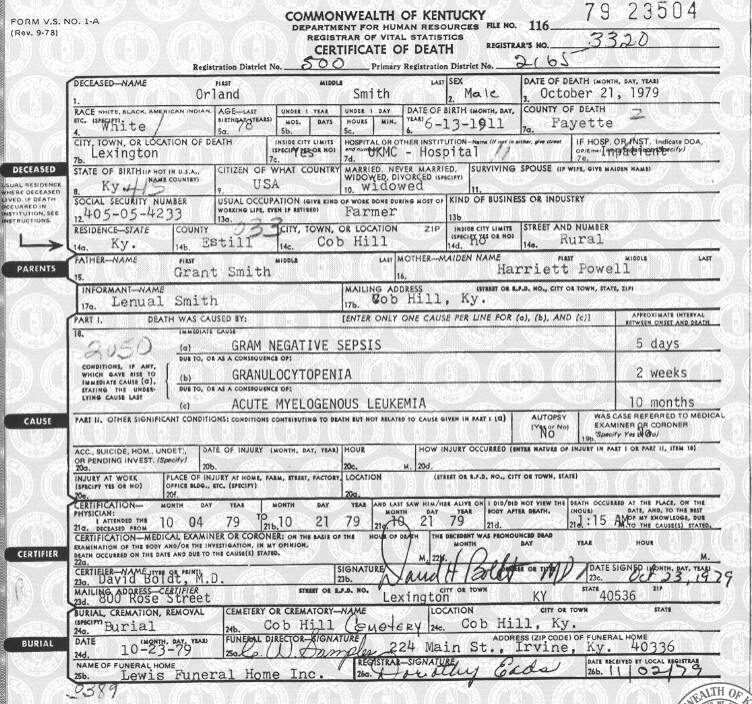 FORM V.S. NO. 1-A
(Rev. 9-78)
COMMONWEALTH OF KENTUCKY
DEPARTMENT FOR HUMAN RESOURCES
REGISTRAR OF VITAL STATISTICS
CERTIFICATE OF DEATH
FILE NO. 116 79 23504
REGISTRAR'S NO. 3320
Registration District No. 500 Primary Registration District No. 2165
DECEASED—NAME FIRST MIDDLE LAST SEX DATE OF DEATH (MONTH, DAY, YEAR)
1. Orland Smith 2. Male 3. October 21, 1979
RACE WHITE, BLACK, AMERICAN INDIAN, ETC. (SPECIFY) AGE—LAST BIRTHDAY (YEARS) UNDER 1 YEAR UNDER 1 DAY DATE OF BIRTH (MONTH, DAY, YEAR) COUNTY OF DEATH
MOS. DAYS HOURS MIN.
4. White 5a. 78 5b. 5c. 6. 6-13-1911 7a. Fayette 2
CITY, TOWN, OR LOCATION OF DEATH INSIDE CITY LIMITS (SPECIFY YES OR NO) HOSPITAL OR OTHER INSTITUTION—Name (If not in either, give street and number) IF HOSP. OR INST. Indicate DOA,
7b. Lexington 7c. Yes 7d. UKMC - Hospital 7e. Inpatient
DECEASED
USUAL RESIDENCE WHERE DECEASED LIVED. IF DEATH OCCURRED IN INSTITUTION, SEE INSTRUCTIONS.
STATE OF BIRTH (IF NOT IN U.S.A., NAME COUNTRY) CITIZEN OF WHAT COUNTRY MARRIED, NEVER MARRIED, WIDOWED, DIVORCED (SPECIFY) SURVIVING SPOUSE (IF WIFE, GIVE MAIDEN NAME)
8. Ky. 9. USA 10. widowed 11.
SOCIAL SECURITY NUMBER USUAL OCCUPATION (GIVE KIND OF WORK DONE DURING MOST OF WORKING LIFE, EVEN IF RETIRED) KIND OF BUSINESS OR INDUSTRY
12. 405-05-4233 13a. Farmer 13b.
RESIDENCE—STATE COUNTY 033 CITY, TOWN, OR LOCATION ZIP INSIDE CITY LIMITS (SPECIFY YES OR NO) STREET AND NUMBER
14a. Ky. 14b. Estill 14c. Cob Hill 14d. No 14e. Rural
PARENTS
FATHER—NAME FIRST MIDDLE LAST MOTHER—MAIDEN NAME FIRST MIDDLE LAST
15. Grant Smith 16. Harriett Powell
INFORMANT—NAME MAILING ADDRESS (STREET OR R.F.D. NO., CITY OR TOWN, STATE, ZIP)
17a. Lenual Smith 17b. Cob Hill, Ky.
PART I. DEATH WAS CAUSED BY: [ENTER ONLY ONE CAUSE PER LINE FOR (a), (b), AND (c)] APPROXIMATE INTERVAL BETWEEN ONSET AND DEATH
18. IMMEDIATE CAUSE
2050 (a) GRAM NEGATIVE SEPSIS 5 days
CONDITIONS, IF ANY, WHICH GAVE RISE TO IMMEDIATE CAUSE (a), STATING THE UNDERLYING CAUSE LAST
DUE TO, OR AS A CONSEQUENCE OF:
(b) GRANULOCYTOPENIA 2 weeks
DUE TO, OR AS A CONSEQUENCE OF:
(c) ACUTE MYELOGENOUS LEUKEMIA 10 months
CAUSE
PART II. OTHER SIGNIFICANT CONDITIONS: CONDITIONS CONTRIBUTING TO DEATH BUT NOT RELATED TO CAUSE GIVEN IN PART I (a) AUTOPSY (Yes or No) WAS CASE REFERRED TO MEDICAL EXAMINER OR CORONER
No 19b. (Specify Yes or No) No
ACC., SUICIDE, HOM., UNDET., OR PENDING INVEST. (Specify) DATE OF INJURY (MONTH, DAY, YEAR) HOUR HOW INJURY OCCURRED (ENTER NATURE OF INJURY IN PART I OR PART II, ITEM 18)
20a. 20b. 20c. M. 20d.
INJURY AT WORK (SPECIFY YES OR NO) PLACE OF INJURY AT HOME, FARM, STREET, FACTORY, OFFICE BLDG., ETC. (SPECIFY) LOCATION (STREET OR R.F.D. NO., CITY OR TOWN, STATE)
20e. 20f. 20g.
CERTIFICATION—PHYSICIAN: MONTH DAY YEAR MONTH DAY YEAR AND LAST SAW HIM/HER ALIVE ON MONTH DAY YEAR I DID/DID NOT VIEW THE BODY AFTER DEATH. DEATH OCCURRED AT THE PLACE, ON THE DATE, AND, TO THE BEST OF MY KNOWLEDGE, DUE TO THE CAUSE(S) STATED.
21a. I ATTENDED THE DECEASED FROM 10 04 79 TO 21b. 10 21 79 21c. 10 21 79 21d. (HOUR) :15 AM
CERTIFIER
CERTIFICATION—MEDICAL EXAMINER OR CORONER: ON THE BASIS OF THE EXAMINATION OF THE BODY AND/OR THE INVESTIGATION, IN MY OPINION, DEATH OCCURRED ON THE DATE AND DUE TO THE CAUSE(S) STATED. HOUR OF DEATH THE DECEDENT WAS PRONOUNCED DEAD
MONTH DAY YEAR HOUR
22a. M. 22b. M.
CERTIFIER—NAME (TYPE OR PRINT) SIGNATURE DEGREE OR TITLE) DATE SIGNED (MONTH, DAY, YEAR)
23a. David Boldt, M.D. 23b. David H Boldt MD 23c. Oct 23, 1979
MAILING ADDRESS—CERTIFIER STREET OR R.F.D. NO. CITY OR TOWN STATE ZIP
23d. 800 Rose Street Lexington KY 40536
BURIAL
BURIAL, CREMATION, REMOVAL (SPECIFY) CEMETERY OR CREMATORY—NAME LOCATION CITY OR TOWN STATE
24a. Burial 24b. Cob Hill Cemetery 24c. Cob Hill, Ky.
DATE (MONTH, DAY, YEAR) FUNERAL DIRECTOR—SIGNATURE ADDRESS (ZIP CODE) OF FUNERAL HOME
24d. 10-23-79 25a. 224 Main St., Irvine, Ky. 40336
NAME OF FUNERAL HOME REGISTRAR—SIGNATURE DATE RECEIVED BY LOCAL REGISTRAR
25b. Lewis Funeral Home Inc. 26a. Dorothy Eads 26b. 11/02/79
0389